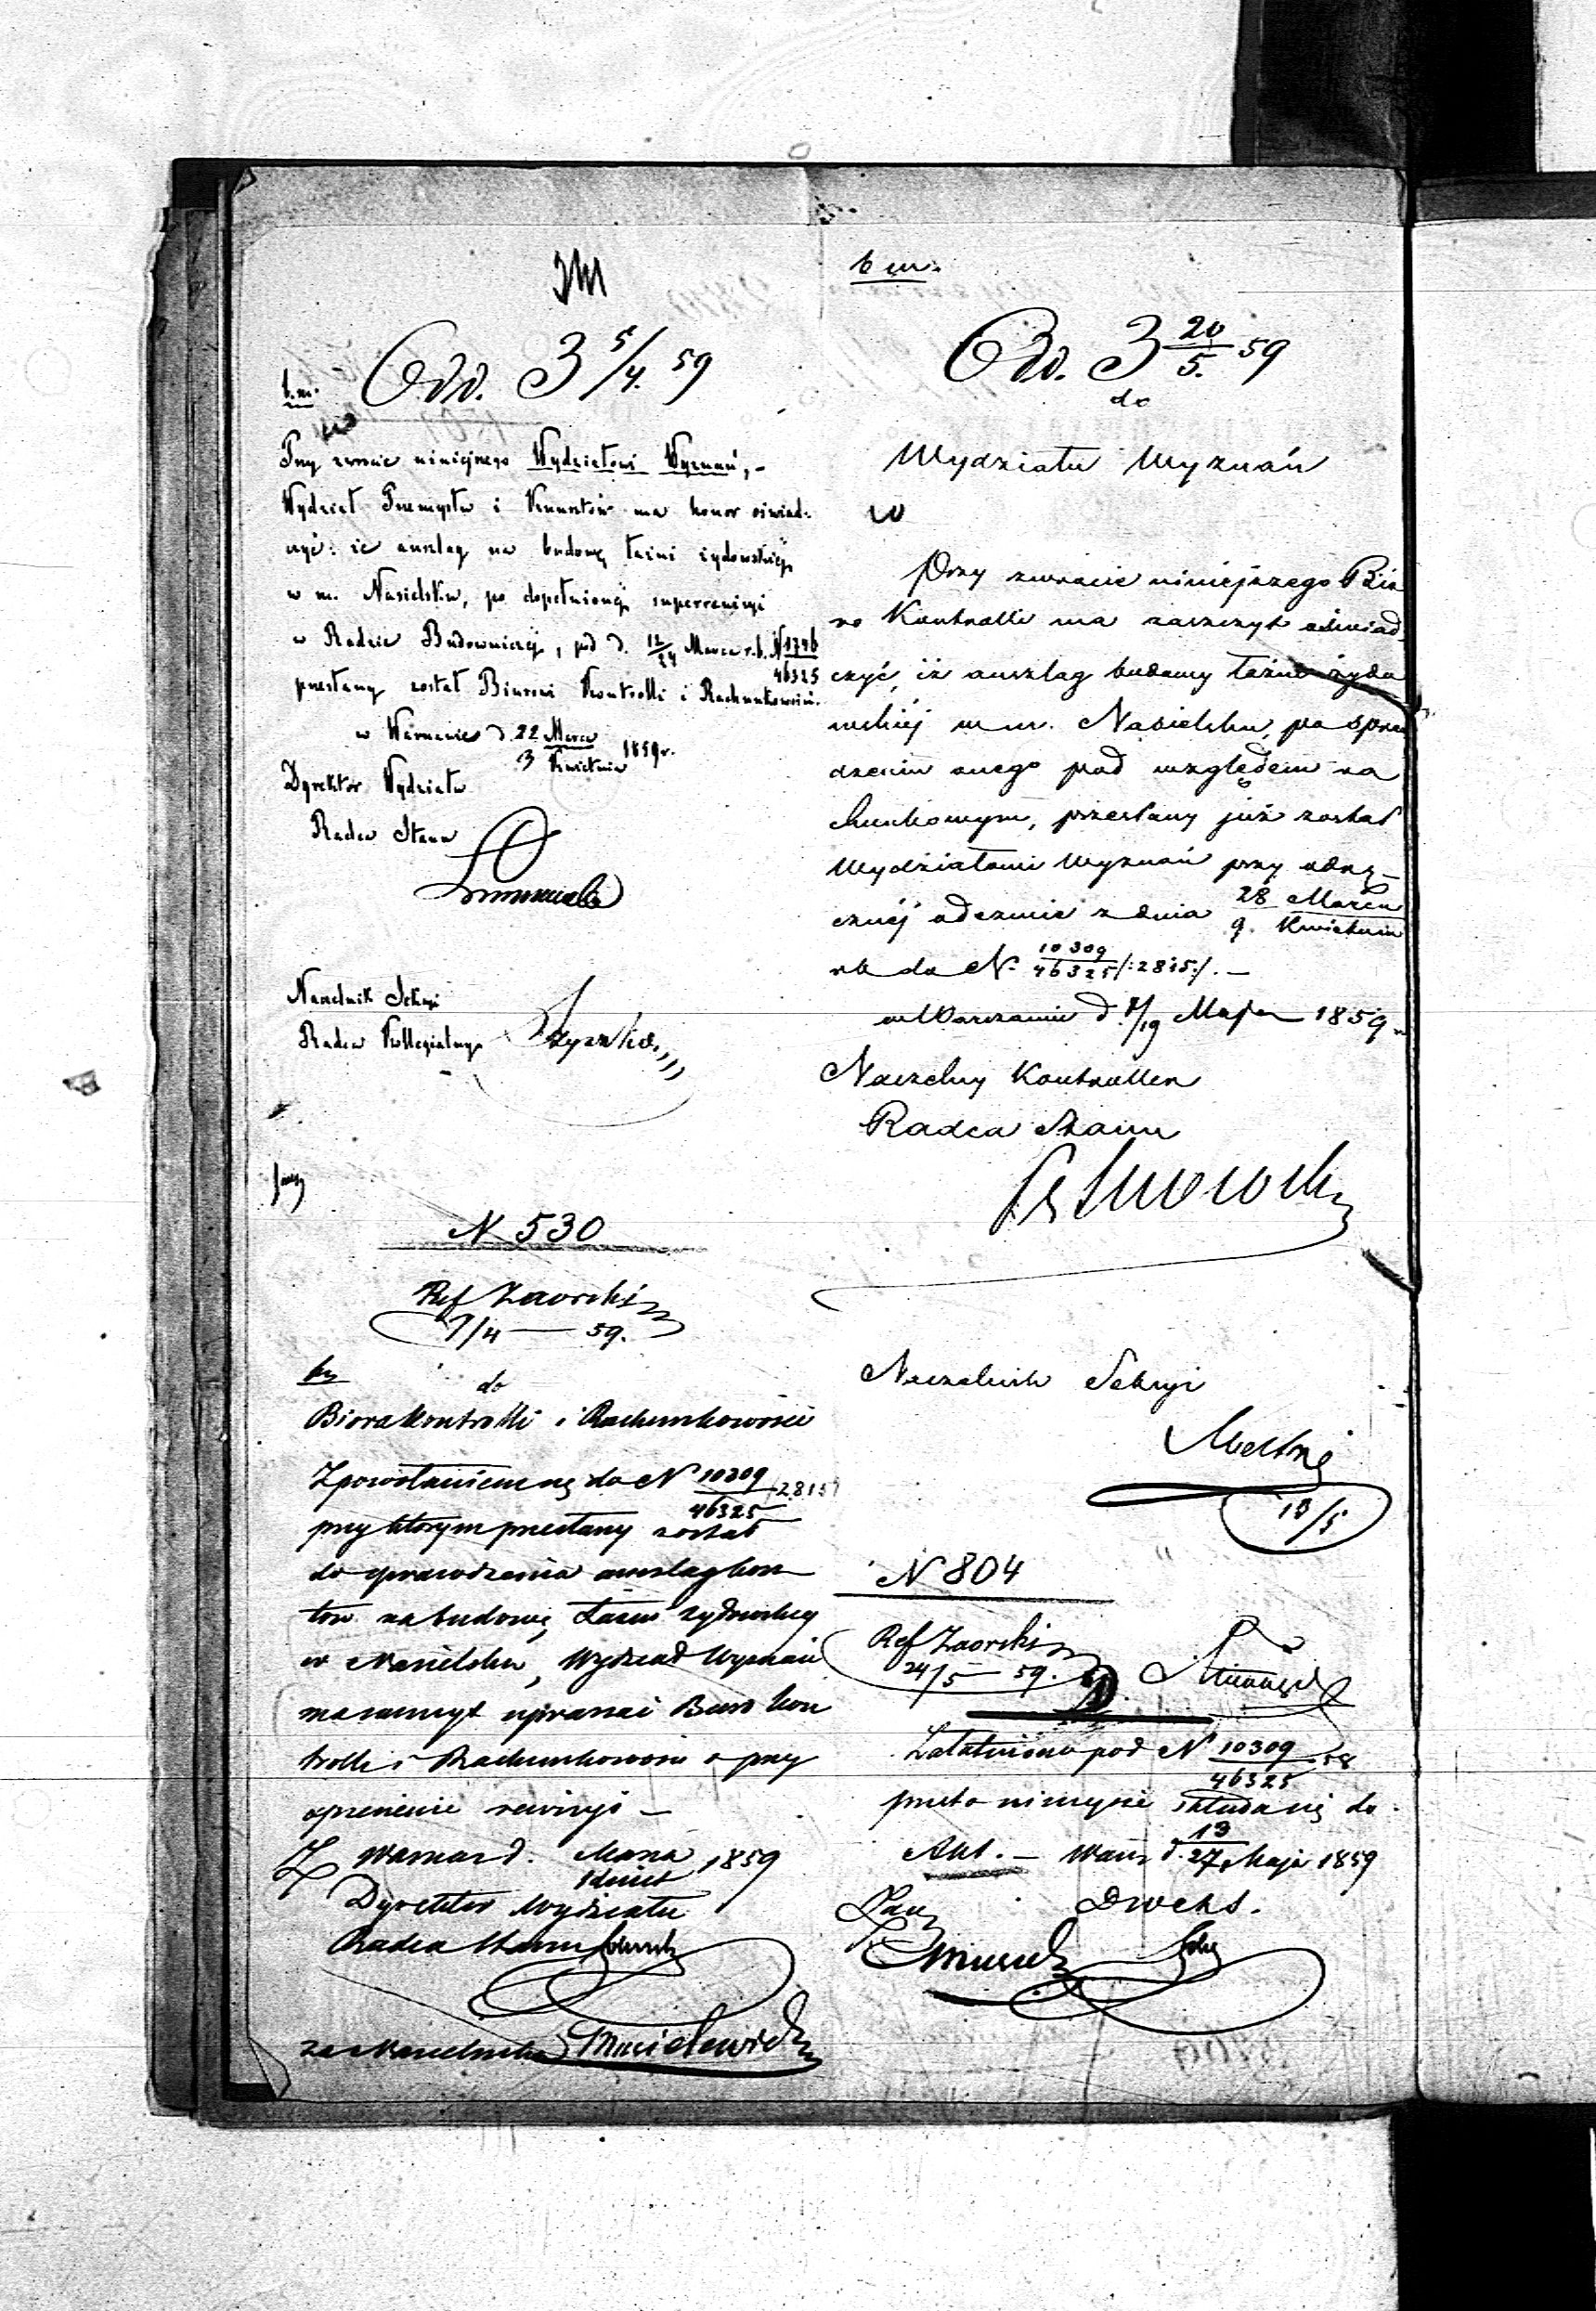 b.m.
Odd. 3 5/4. 59
Przy zwrocie niniejszego Wydziałowi Wyznań, –
Wydział Przemysłu i Kunsztów ma honor oświad-
czyć: iż anszlag na budowę łaźni żydowskiej
w m. Nasielsku, po dopełnionej superrewizyi
w Radzie Budowniczej, pod d. 12/24 Marca r.b. N 1796/46325
przesłany został Biurowi Kontrolli i Rachunkowości.
w Warszawie d. 22 Marca/3 Kwietnia 1859 r.
Dyrektor Wydziału
Radca Stanu
Naczelnik Sekcyi
Radca Kollegialny
N 530
Ref Zaorski
7/4 — 59.
do
Biora Kontrolli i Rachunkowości
Z powołaniem się do N 10309/46325 (2815)
przy którym przesłany został
do sprawdzenia anszlag kosz
tów na budowę Łaźni żydowskiej
w Nasielsku, Wydział Wyznań
ma zaszczyt upraszać Biuro Kon
trolli i Rachunkowości o przy
spieszenie rewizyi –
Warszawa d. Marca/Kwiet 1859
Dyrektor Wydziału
Radca Stanu
za Naczelnika
b m.
Odd. 3 20/5. 59
do
Wydziału Wyznań
Przy zwrocie niniejszego Biu
ro Kontrolli ma zaszczyt oświad-
czyć, iż anszlag budowy łaźni żydo
wskiej w m. Nasielsku, po spraw
dzeniu onego pod względem ra
chunkowym, przesłany już został
Wydziałowi Wyznań przy odrę-
cznej odezwie z dnia 28 Marca/9. Kwietnia
rb do N. 10309/46325 /:2815:/. –
w Warszawie d. 7/19 Maja 1859 r
Naczelny Kontroller
Radca Stanu
Naczelnik Sekcyi
18/5
N 804
Ref Zaorski
24/5 — 59.
Załatwiono pod N 10309/46325 58
przeto niniejsze składa się do
Akt. – Warsz d. 13/27 Maja 1859